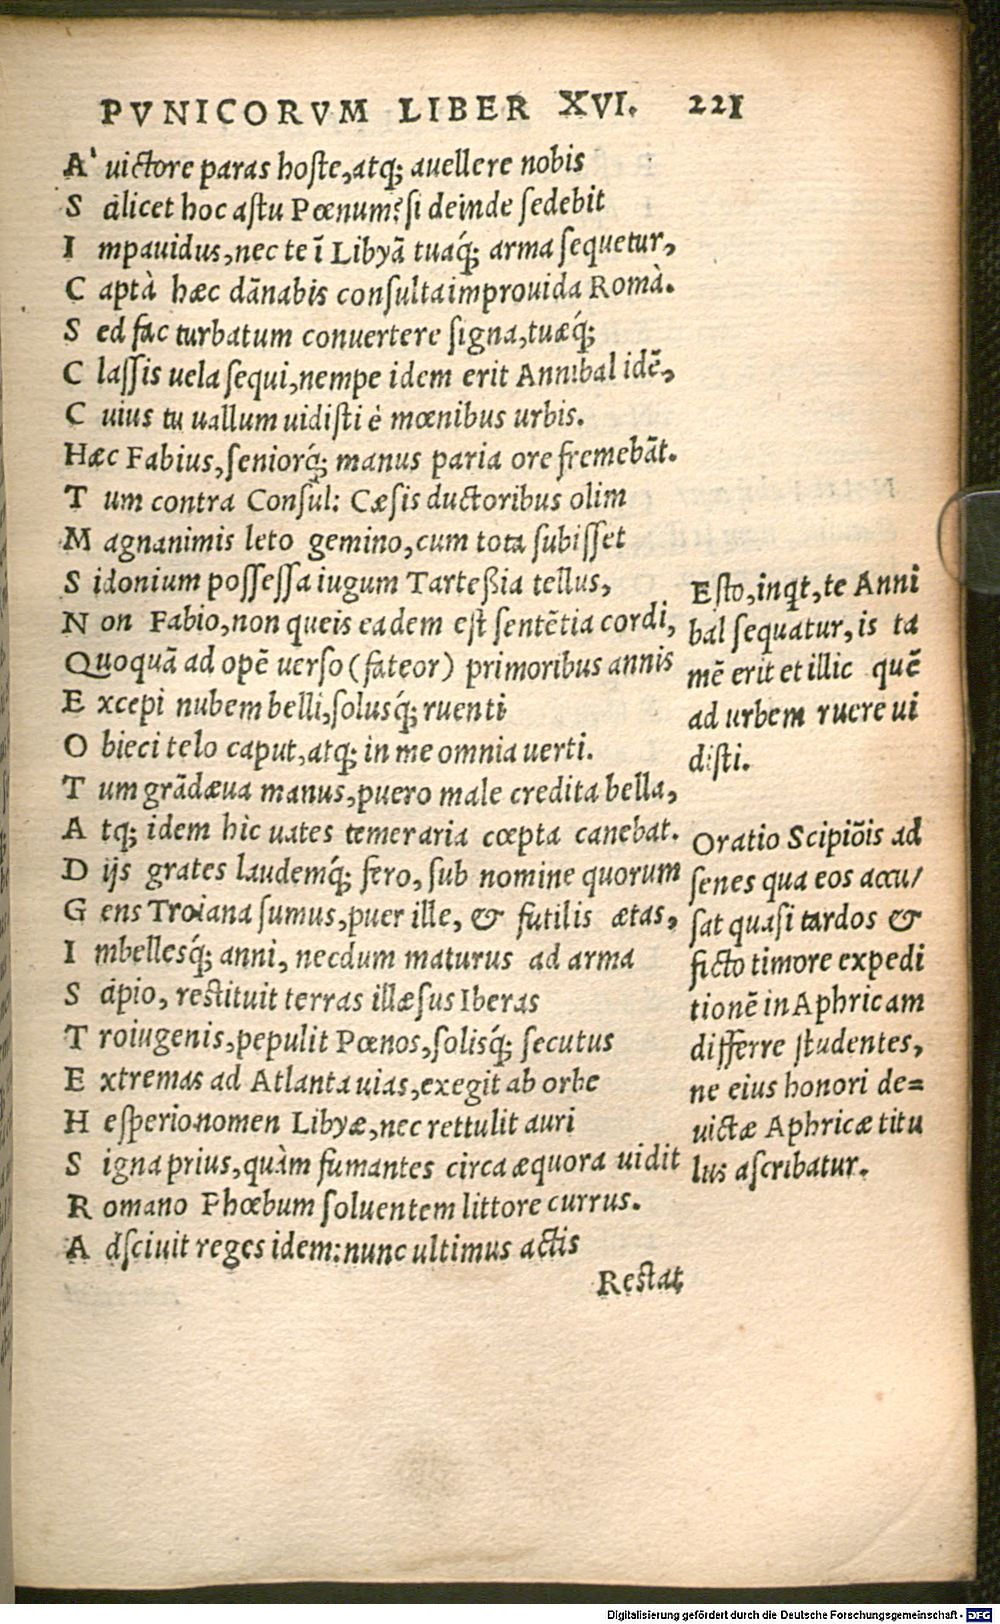 PVNICORVM LIBER XVI. 221
A' uictore paras hoste, atq; auellere nobis
S cilicet hoc astu Pœnum? si deinde sedebit
I mpauidus, nec te ĩ Libyã tuaq́; arma sequetur,
C aptà hæc dãnabis consulta improuida Romà.
S ed fac turbatum conuertere signa, tuæq́;
C lassis uela sequi, nempe idem erit Annibal idẽ,
C uius tu uallum uidisti è mœnibus urbis.
Hæc Fabius, seniorq́; manus paria ore fremebãt.
T um contra Consul: Cæsis ductoribus olim
M agnanimis leto gemino, cum tota subisset
S idonium possessa iugum Tarteßia tellus,
N on Fabio, non queis eadem est sentẽtia cordi,
Quoquã ad opẽ uerso (fateor) primoribus annis
E xcepi nubem belli, solusq́; ruenti
O bieci telo caput, atq; in me omnia uerti.
T um grãdæua manus, puero male credita bella,
A tq; idem hic uates temeraria cœpta canebat.
D ijs grates laudemq́; fero, sub nomine quorum
G ens Troiana sumus, puer ille, & futilis ætas,
I mbellesq́; anni, necdum maturus ad arma
S cipio, restituit terras illæsus Iberas
T roiugenis, pepulit Pœnos, solisq́; secutus
E xtremas ad Atlanta uias, exegit ab orbe
H esperio nomen Libyæ, nec rettulit auri
S igna prius, quàm fumantes circa æquora uidit
R omano Phœbum soluentem littore currus.
A dsciuit reges idem: nunc ultimus actis
Restat
Esto, inqt, te Anni
bal sequatur, is ta
mẽ erit et illic quẽ
ad urbem ruere ui
disti.
Oratio Scipiõis ad
senes qua eos accu/
sat quasi tardos &
ficto timore expedi
tionẽ in Aphricam
differre studentes,
ne eius honori de=
uictæ Aphricæ titu
lus ascribatur.
Digitalisierung gefördert durch die Deutsche Forschungsgemeinschaft - DFG